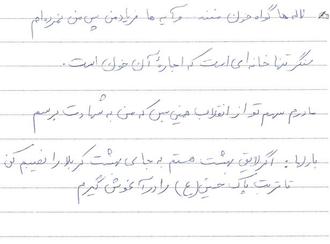 لاله ها گواه خون منند و آیه ها فریاد من پس من نمرده ام
سنگر تنها خانه ای است که اجاره آن خون است.
مادرم سهم تو از انقلاب همین بس که من به شهادت برسم
بارالها: اگر لایق بهشت هستم به جای بهشت کربلا را نصیبم کن
تا تربت پاک حسین (ع) را در آغوش گیرم